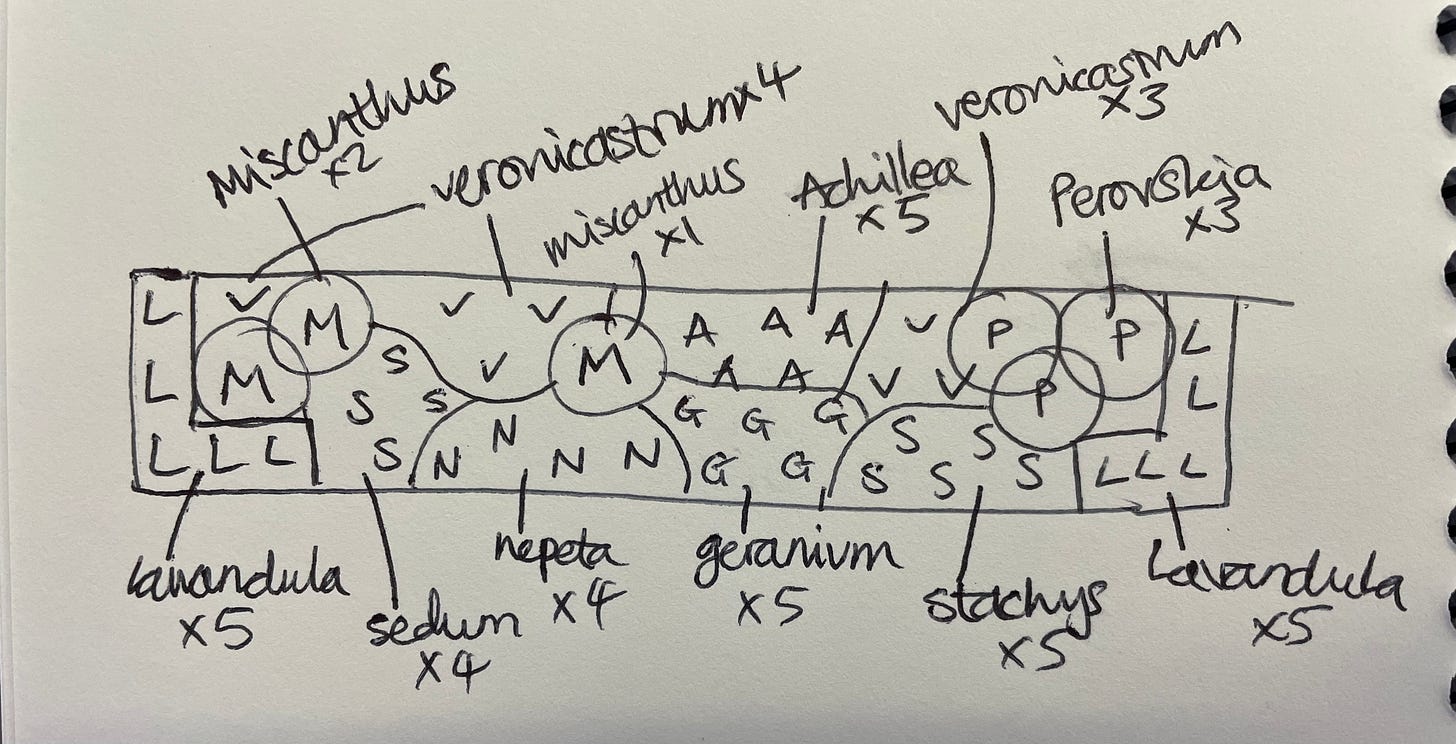 Miscanthus
x2
veronicastrum x4
miscanthus
x1
Achillea
x5
veronicastrum
x3
Perovskia
x3
L V M V V M A A A V P P L
L M S V A A V V P L
S S N G G G S S
L L L S N N N G G S S S L L L
lavandula
x5
sedum
x4
nepeta
x4
geranium
x5
stachys
x5
Lavandula
x5